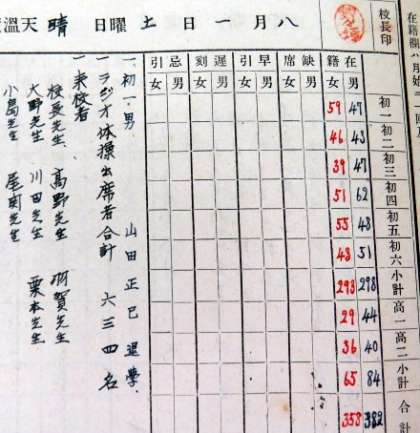 八月一日 土曜日 晴 天溫
校長印
在籍 缺席 早引 遲刻 忌引
男 女 男 女 男 女 男 女 男 女
初一 47 59
初二 43 46
初三 47 39
初四 62 51
初五 48 55
初六 51 43
小計 298 293
高一 44 29
高二 40 36
小計 84 65
合計 382 358
一、初一・男 山田正巳 退學.
一 ラジオ体操出席者合計 六三四名
一 来校者
校長先生 高野先生 羽賀先生
大野先生 川田先生 栗本先生
小島先生 尾関先生